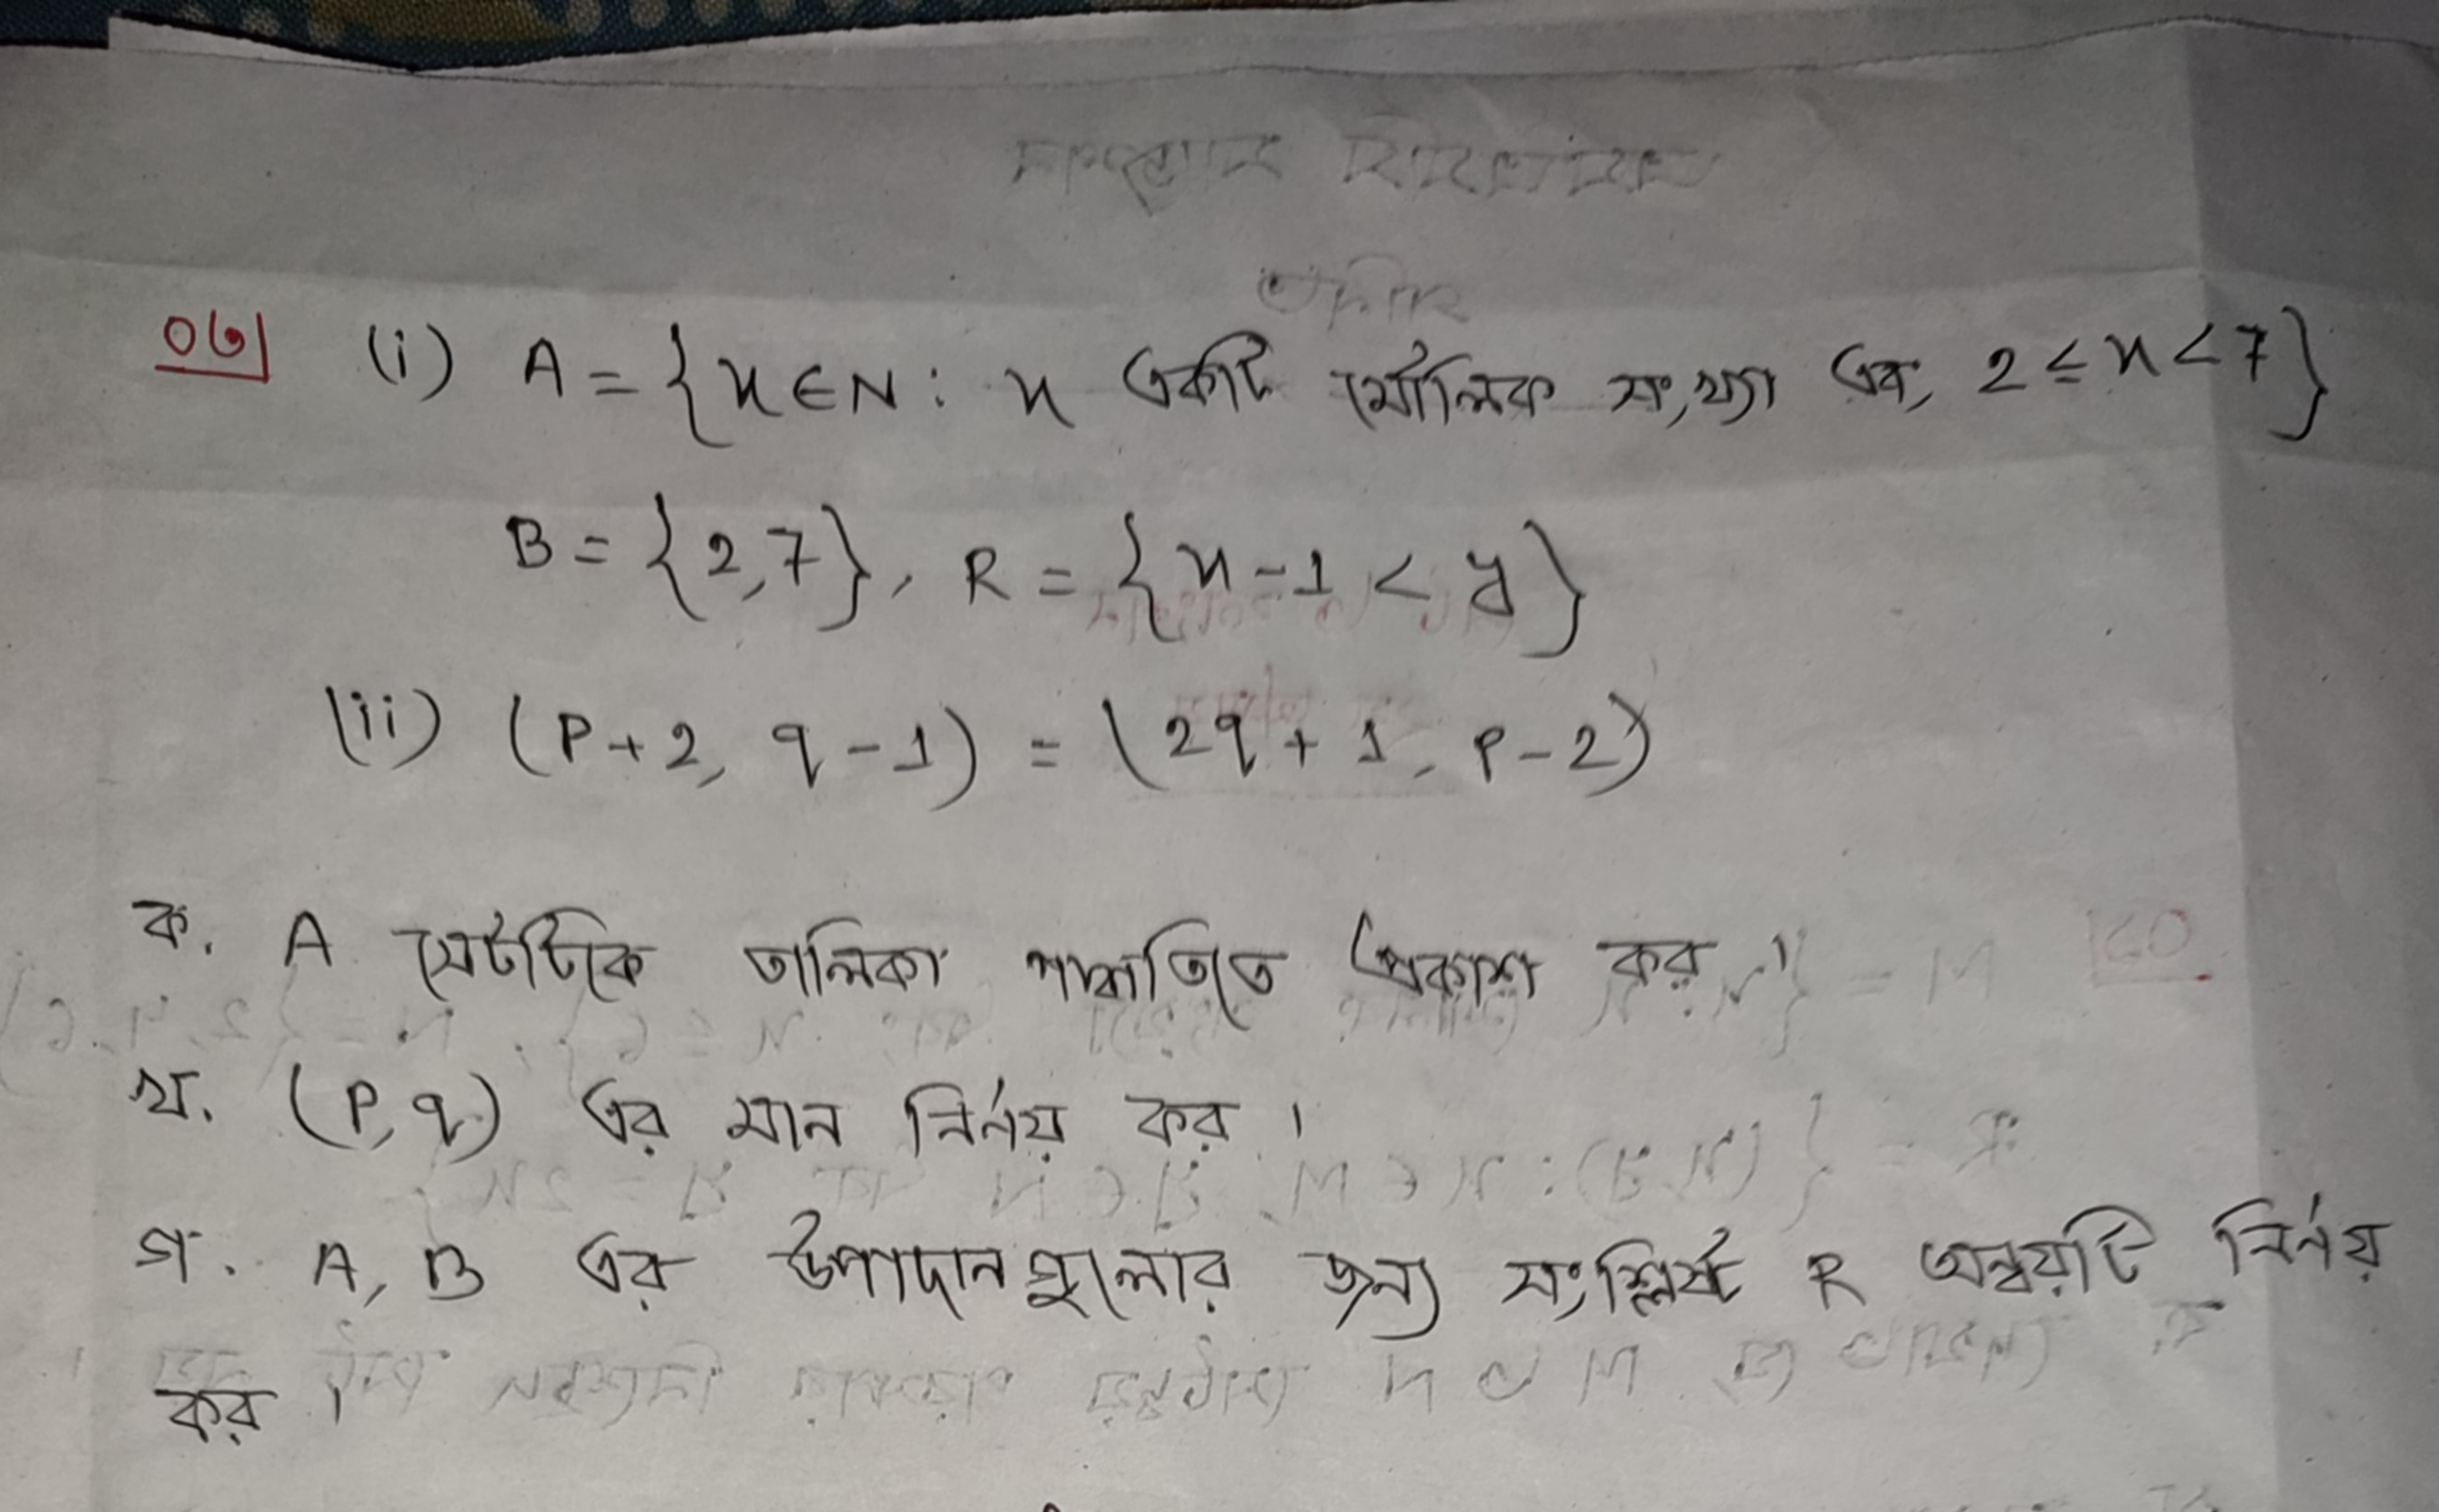 ০৩| (i) A = {x ∈ N : x একটি মৌলিক সংখ্যা এবং 2 ≤ x < 7}
B = {2, 7}, R = {x - 1 < y}
(ii) (p + 2, q - 1) = (2q + 1, p - 2)
ক. A সেটটিকে তালিকা পদ্ধতিতে প্রকাশ কর।
খ. (p, q) এর মান নির্ণয় কর।
গ. A, B এর উপাদানগুলোর জন্য সংশ্লিষ্ট R অন্বয়টি নির্ণয়
কর।